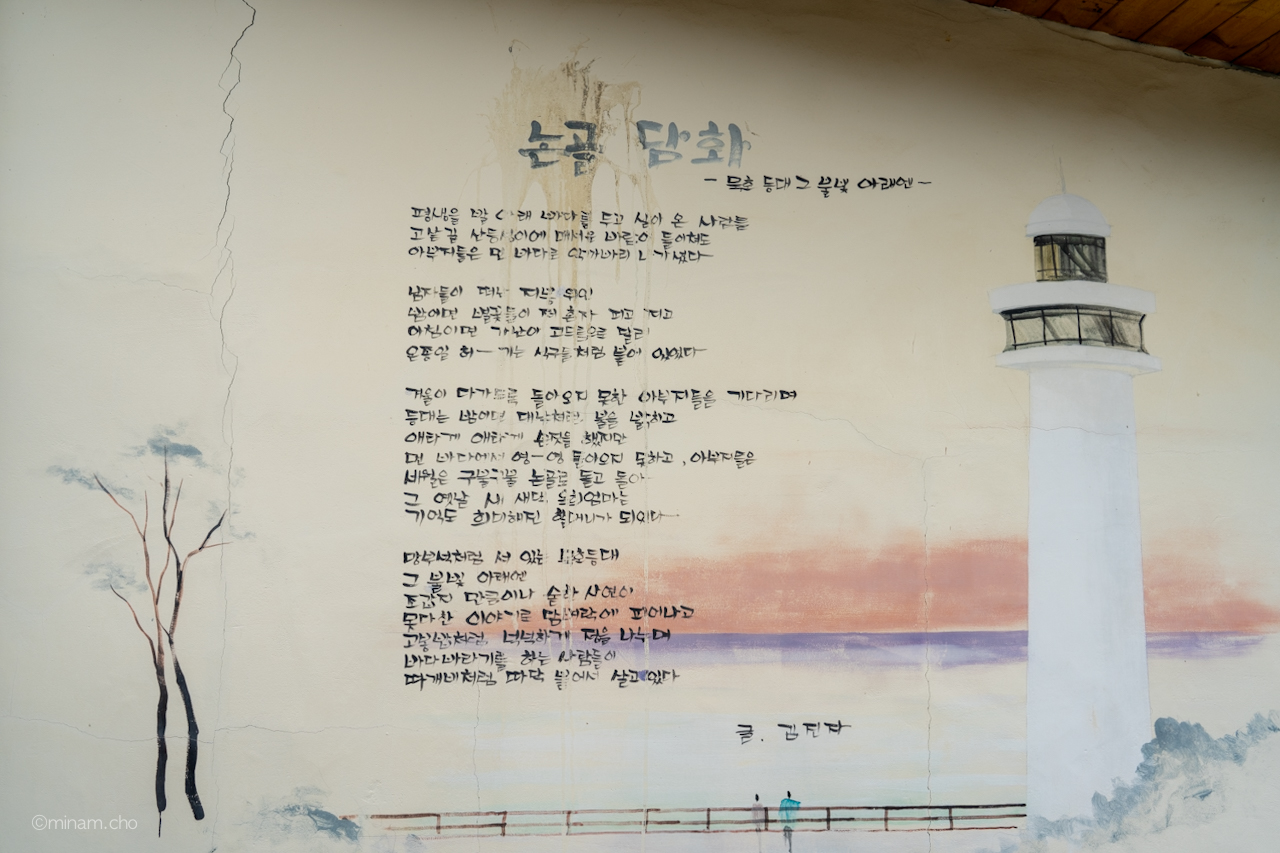 논골 담화
- 묵호 등대 그 불빛 아래엔 -
평생을 발 아래 바다를 두고 살아 온 사람들
고샅길 산등성이에 매서운 바람이 들이쳐도
아부지들은 먼 바다로 나가셨다
남자들이 떠난 저녁
밤에면 불꽃들이 저 혼자 피고 지고
아침이면 가난이 고드름으로 달려
온종일 허기진 식구들처럼 붙어 있었다
겨울이 다가도록 돌아오지 못한 아부지들을 기다리며
등대는 밤이면 대낮처럼 불을 밝히고
애타게 애타게 손짓을 했지만
먼 바다에서 영영 돌아오지 못하고, 아부지들은
세월은 구불구불 논골로 돌고 돌아
그 옛날 새댁, 엄마는
기억도 희미해진 할머니가 되었다
망부석처럼 서 있는 묵호등대
그 불빛 아래엔
조갑지 만큼이나 숱한 사연이
못다한 이야기로 담벼락에 피어나고
고봉밥처럼, 넉넉하게 정을 나누며
바다바라기를 하는 사람들이
따개비처럼 따닥 붙어서 살고 있다
글. 김진자
©minam.cho